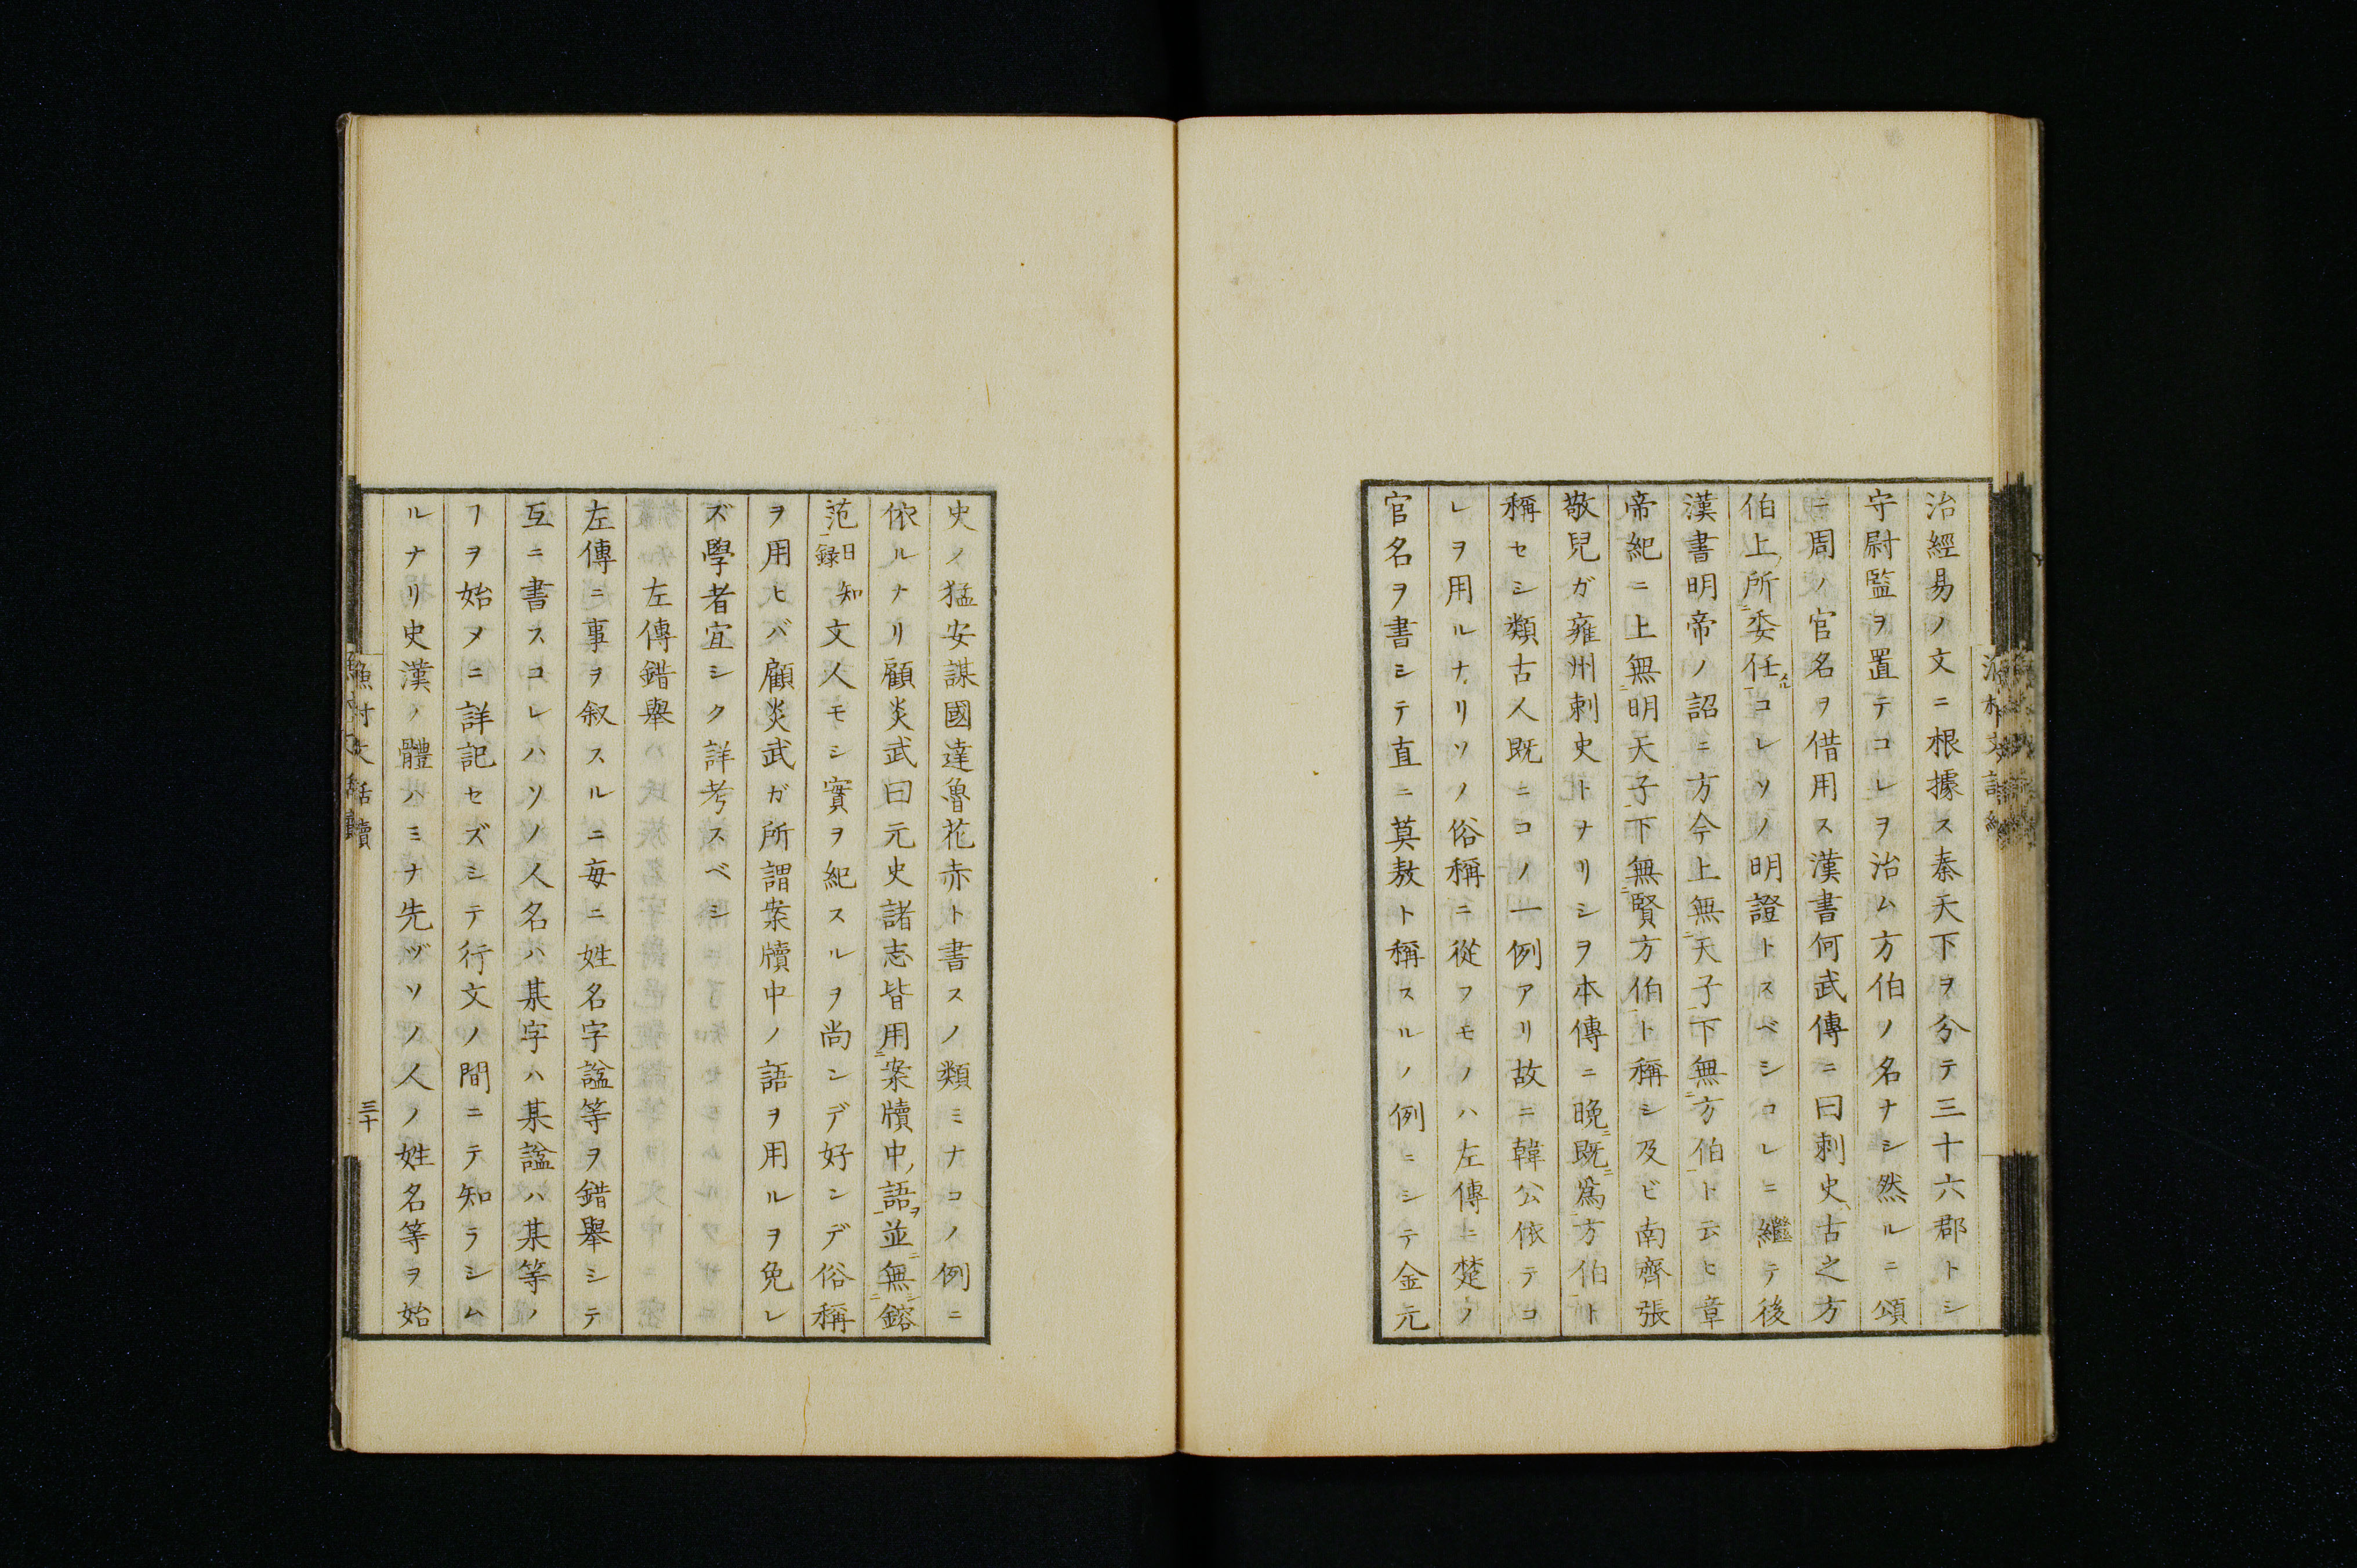 治經易ノ文ニ根據ス秦天下ヲ分テ三十六郡トシ
守尉監ヲ置テコレヲ治ム方伯ノ名ナシ然ルニ頌
ニ周ノ官名ヲ借用ス漢書何武傳ニ曰刺史古之方
伯上ノ所委任スルコレソノ明證トスベシコレニ繼テ後
漢書明帝ノ詔ニ方今上無天子下無方伯ト云ヒ章
帝紀ニ上無明天子下無賢方伯ト稱シ及ビ南齊張
敬兒ガ雍州刺史トナリシヲ本傳ニ晚既爲方伯ト
稱セシ類古人既ニコノ一例アリ故ニ韓公依テコ
レヲ用ルナリソノ俗稱ニ從フモノハ左傳ニ楚ノ
官名ヲ書シテ直ニ莫敖ト稱スルノ例ニシテ金元
史ノ猛安謀國達魯花赤ト書スノ類ミナコノ例ニ
依ルナリ顧炎武曰元史諸志皆用案牘中ノ語ヲ並無鎔
范日知錄文人モシ實ヲ紀スルヲ尚ンデ好ンデ俗稱
ヲ用ヒバ顧炎武ガ所謂案牘中ノ語ヲ用ルヲ免レ
ズ學者宜シク詳考スベシ
左傳錯舉
左傳ニ事ヲ叙スルニ每ニ姓名字謚等ヲ錯舉シテ
互ニ書スコレハソノ人名ハ某字ハ某謚ハ某等ノ
ヿヲ始メニ詳記セズシテ行文ノ間ニテ知ラシム
ルナリ史漢ノ體ハミナ先ヅソノ人ノ姓名等ヲ始
漁村文話續
三十